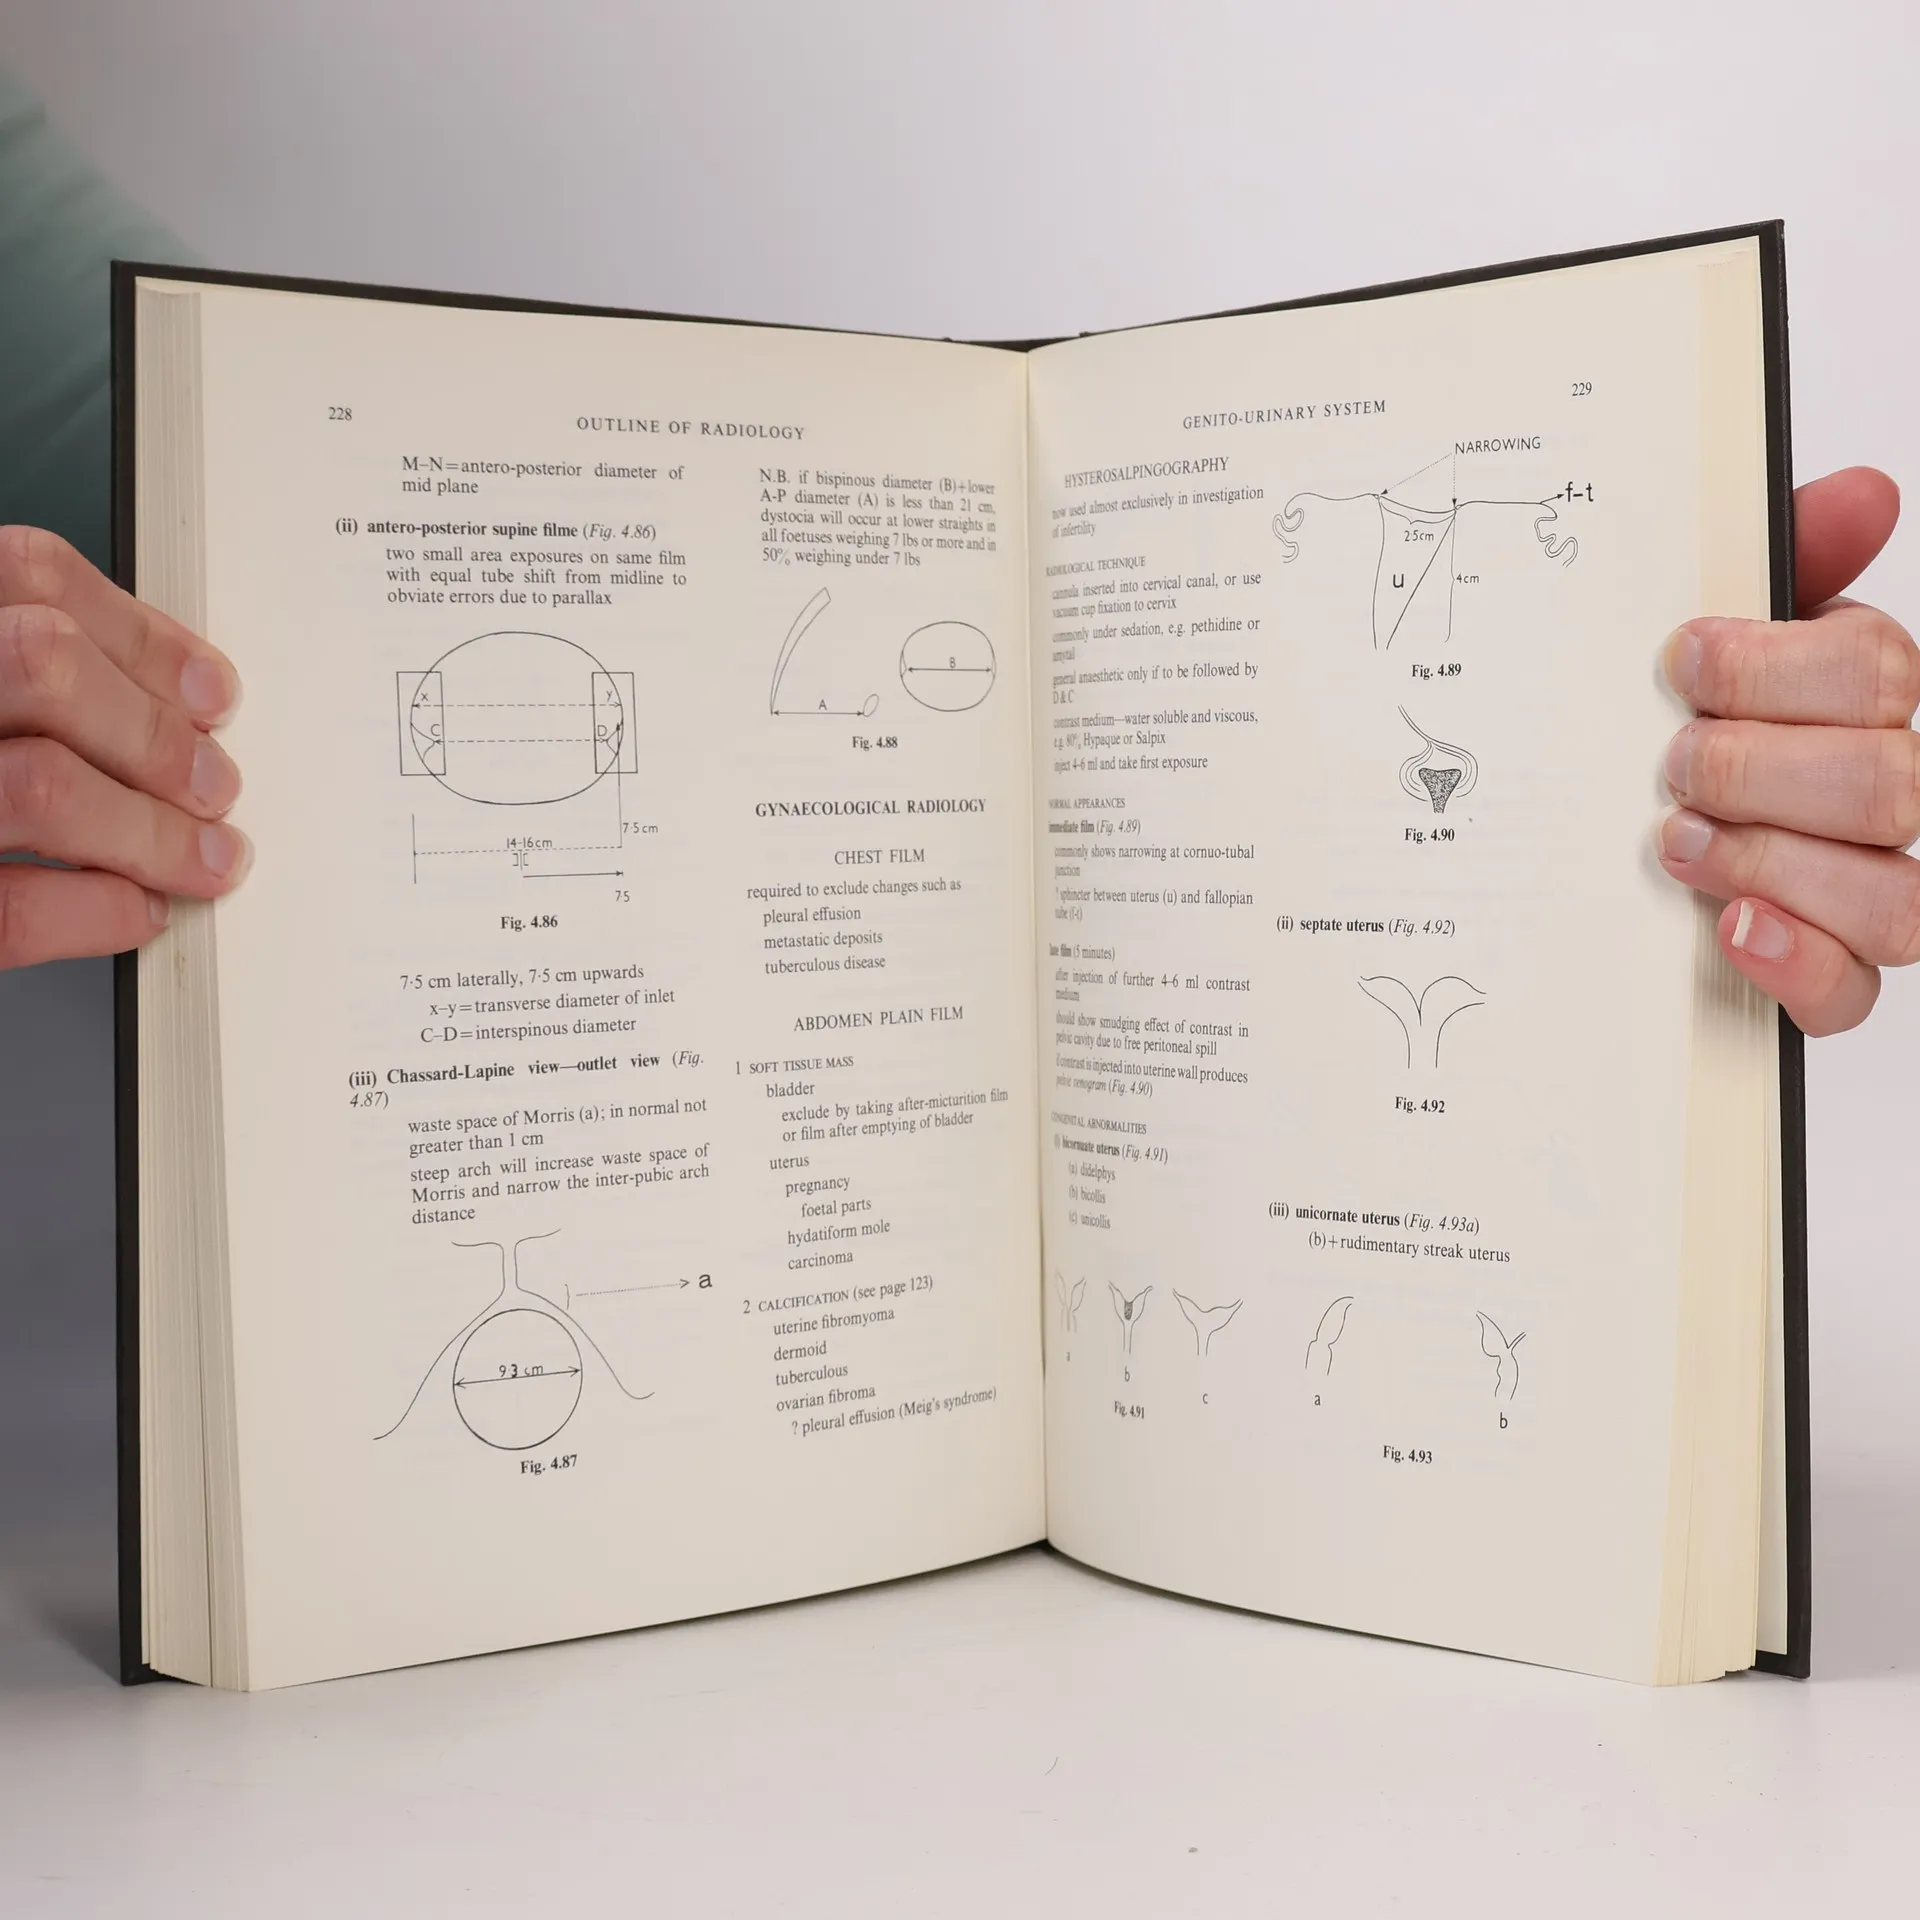 228
OUTLINE OF RADIOLOGY
M–N=antero-posterior diameter of
mid plane
(ii) antero-posterior supine filme (Fig. 4.86)
two small area exposures on same film
with equal tube shift from midline to
obviate errors due to parallax
x
y
C
D
7·5 cm
14-16cm
7·5
Fig. 4.86
7·5 cm laterally, 7·5 cm upwards
x–y=transverse diameter of inlet
C–D=interspinous diameter
(iii) Chassard-Lapine view—outlet view (Fig.
4.87)
waste space of Morris (a); in normal not
greater than 1 cm
steep arch will increase waste space of
Morris and narrow the inter-pubic arch
distance
a
9·3 cm
Fig. 4.87
N.B. if bispinous diameter (B)+lower
A-P diameter (A) is less than 21 cm,
dystocia will occur at lower straights in
all foetuses weighing 7 lbs or more and in
50% weighing under 7 lbs
A
B
Fig. 4.88
GYNAECOLOGICAL RADIOLOGY
CHEST FILM
required to exclude changes such as
pleural effusion
metastatic deposits
tuberculous disease
ABDOMEN PLAIN FILM
1 SOFT TISSUE MASS
bladder
exclude by taking after-micturition film
or film after emptying of bladder
uterus
pregnancy
foetal parts
hydatiform mole
carcinoma
2 CALCIFICATION (see page 123)
uterine fibromyoma
dermoid
tuberculous
ovarian fibroma
? pleural effusion (Meig's syndrome)
GENITO-URINARY SYSTEM
229
HYSTEROSALPINGOGRAPHY
now used almost exclusively in investigation
of infertility
RADIOLOGICAL TECHNIQUE
cannula inserted into cervical canal, or use
vacuum cup fixation to cervix
commonly under sedation, e.g. pethidine or
amytal
general anaesthetic only if to be followed by
D & C
contrast medium—water soluble and viscous,
e.g. 80% Hypaque or Salpix
inject 4–6 ml and take first exposure
NORMAL APPEARANCES
immediate film (Fig. 4.89)
commonly shows narrowing at cornuo-tubal
junction
? sphincter between uterus (u) and fallopian
tube (f-t)
late film (5 minutes)
after injection of further 4–6 ml contrast
medium
should show smudging effect of contrast in
pelvic cavity due to free peritoneal spill
if contrast is injected into uterine wall produces
pelvic venogram (Fig. 4.90)
CONGENITAL ABNORMALITIES
(i) bicornuate uterus (Fig. 4.91)
(a) didelphys
(b) bicollis
(c) unicollis
a
b
c
Fig. 4.91
NARROWING
f-t
2·5cm
u
4cm
Fig. 4.89
Fig. 4.90
(ii) septate uterus (Fig. 4.92)
Fig. 4.92
(iii) unicornate uterus (Fig. 4.93a)
(b)+rudimentary streak uterus
a
b
Fig. 4.93